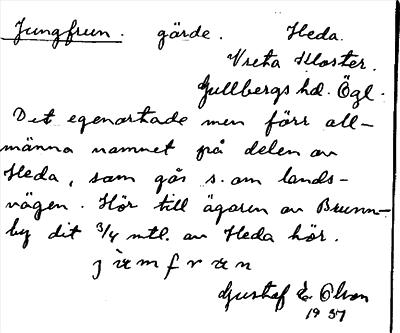 Jungfrun. gärde. Heda.
Vreta Kloster.
Gullbergs hd. Ögl.
Det egenartade men förr all-
männa namnet på delen av
Heda, som går s. om lands-
vägen. Hör till ägaren av Brunn-
by dit 3/4 mtl. av Heda hör.
Gustaf E Olson
1937